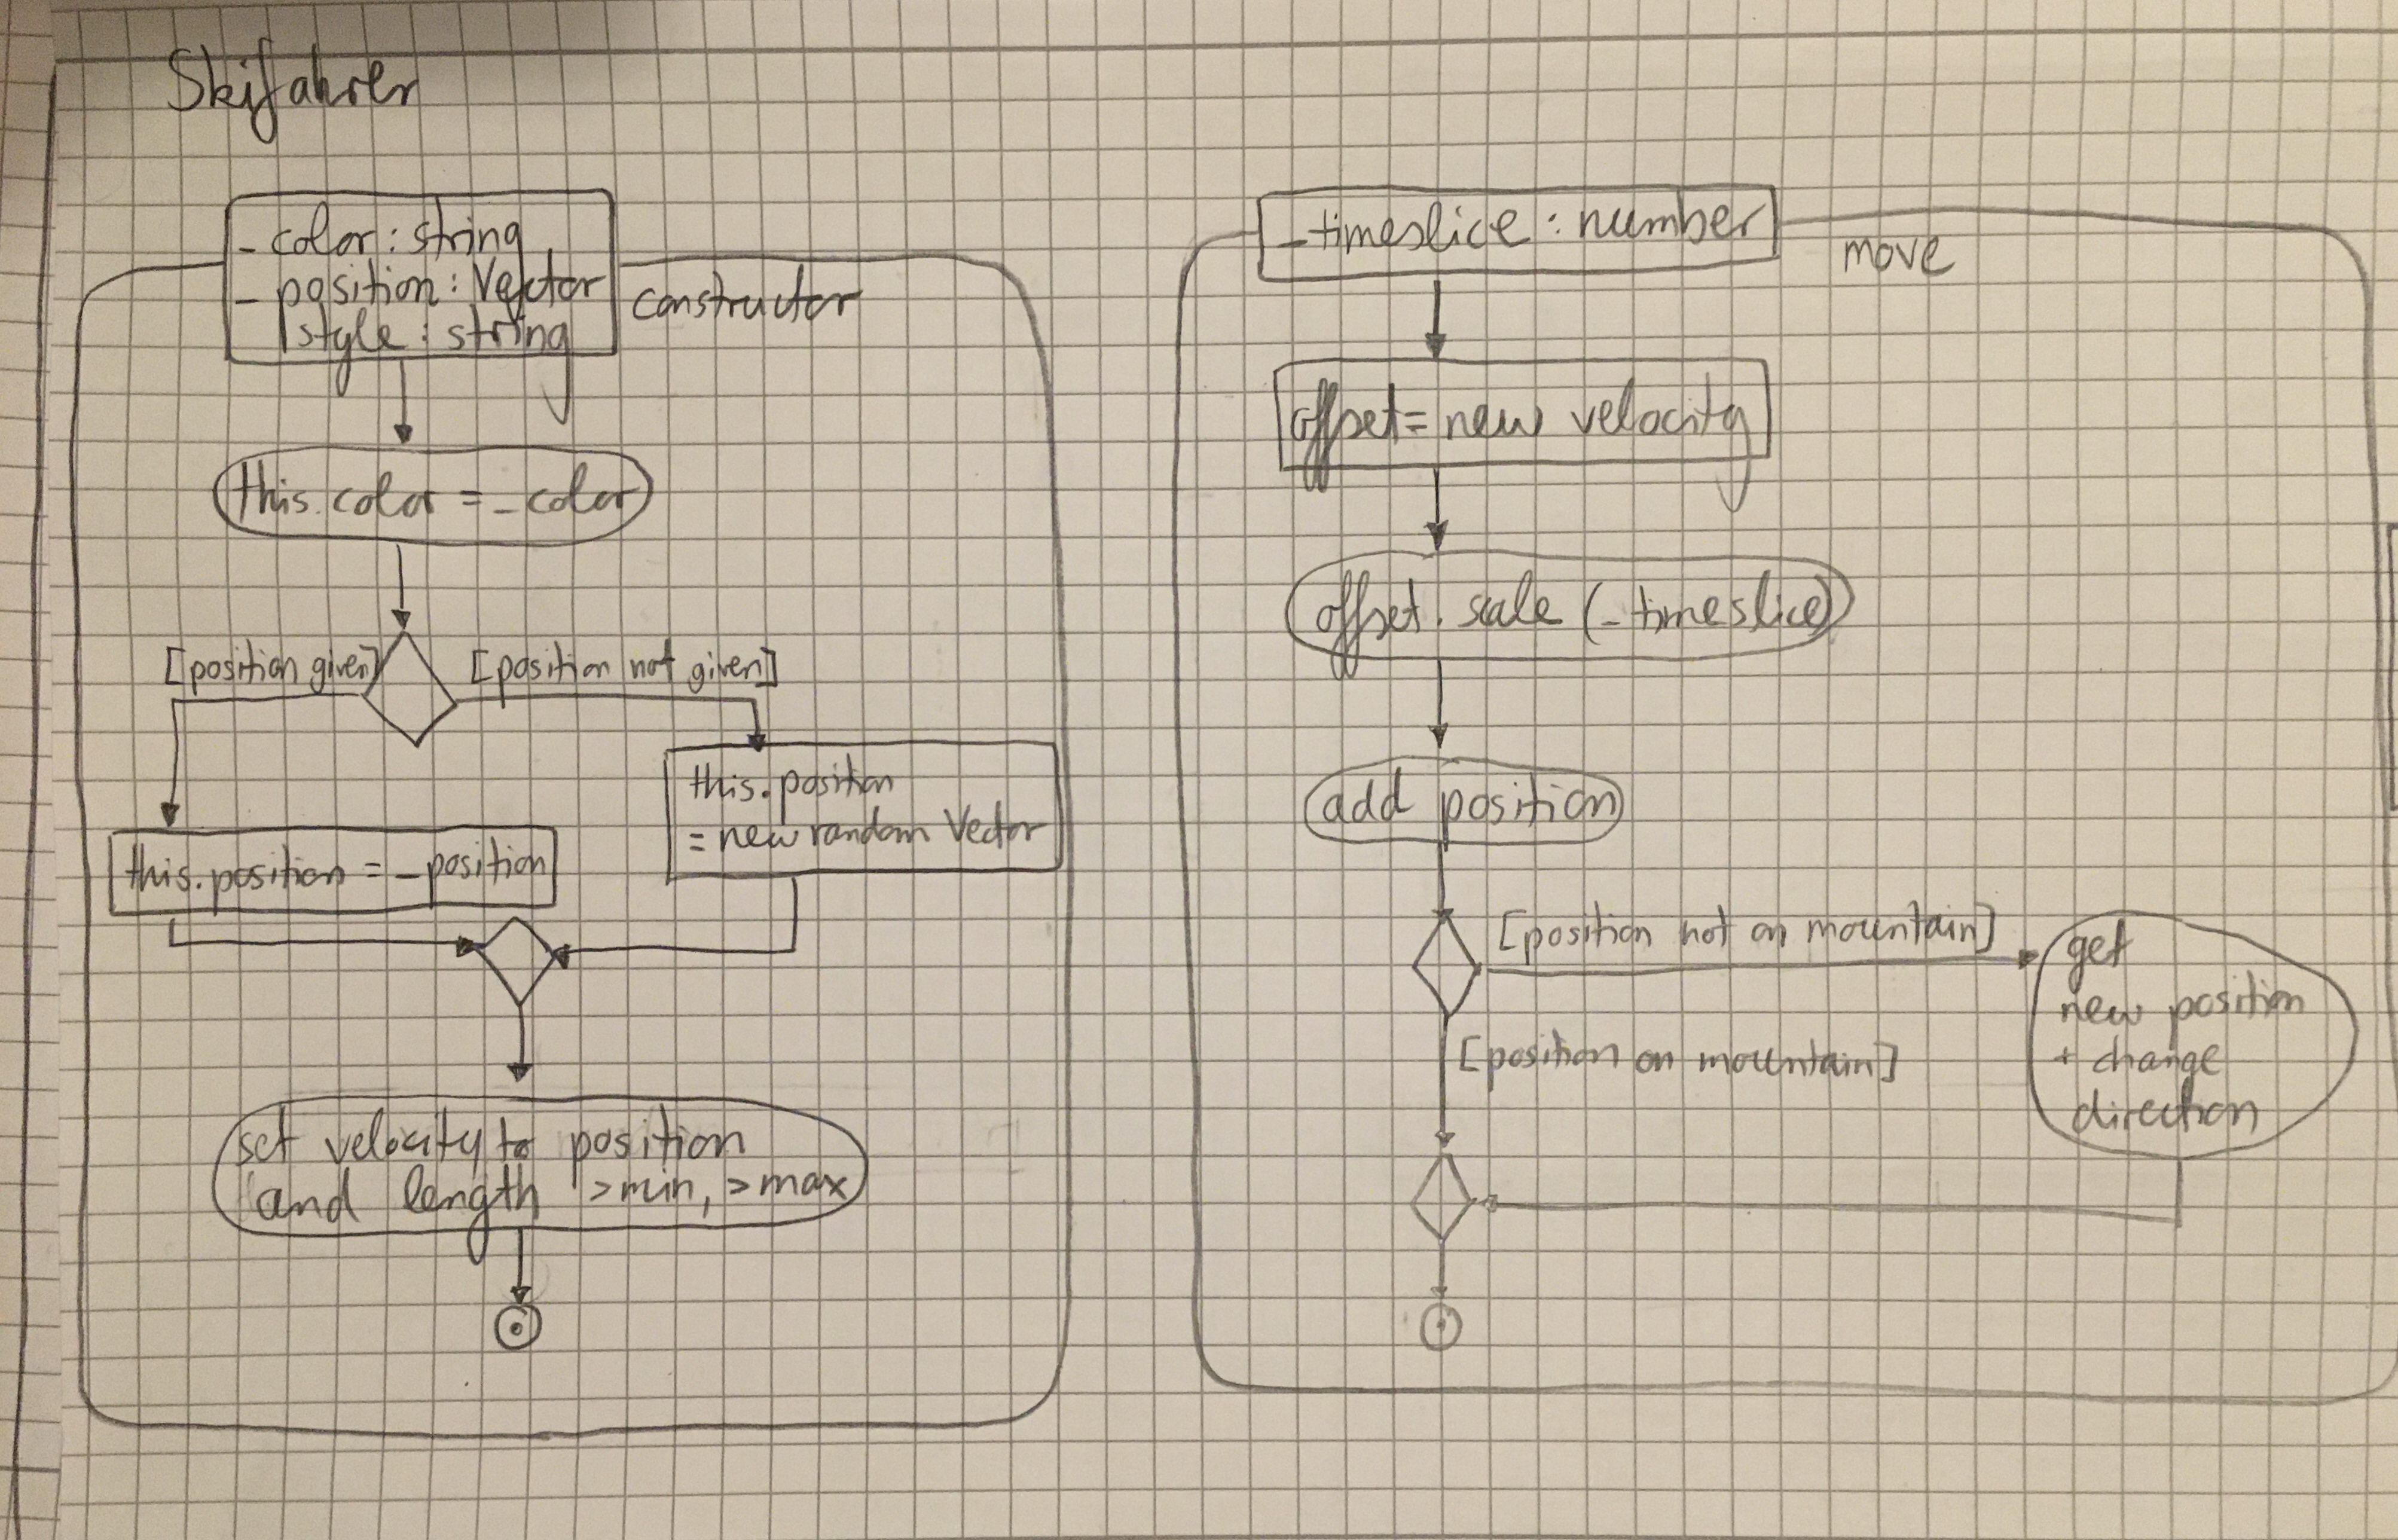 Skifahrer
_color: string
_position: Vector
style: string
constructor
this.color = _color
[position given]
[position not given]
this.position
= new random Vector
this.position = _position
set velocity to position
and length >min, >max
_timeslice: number
move
offset = new velocity
offset.scale (_timeslice)
add position
[position not on mountain]
get
new position
+ change
direction
[position on mountain]